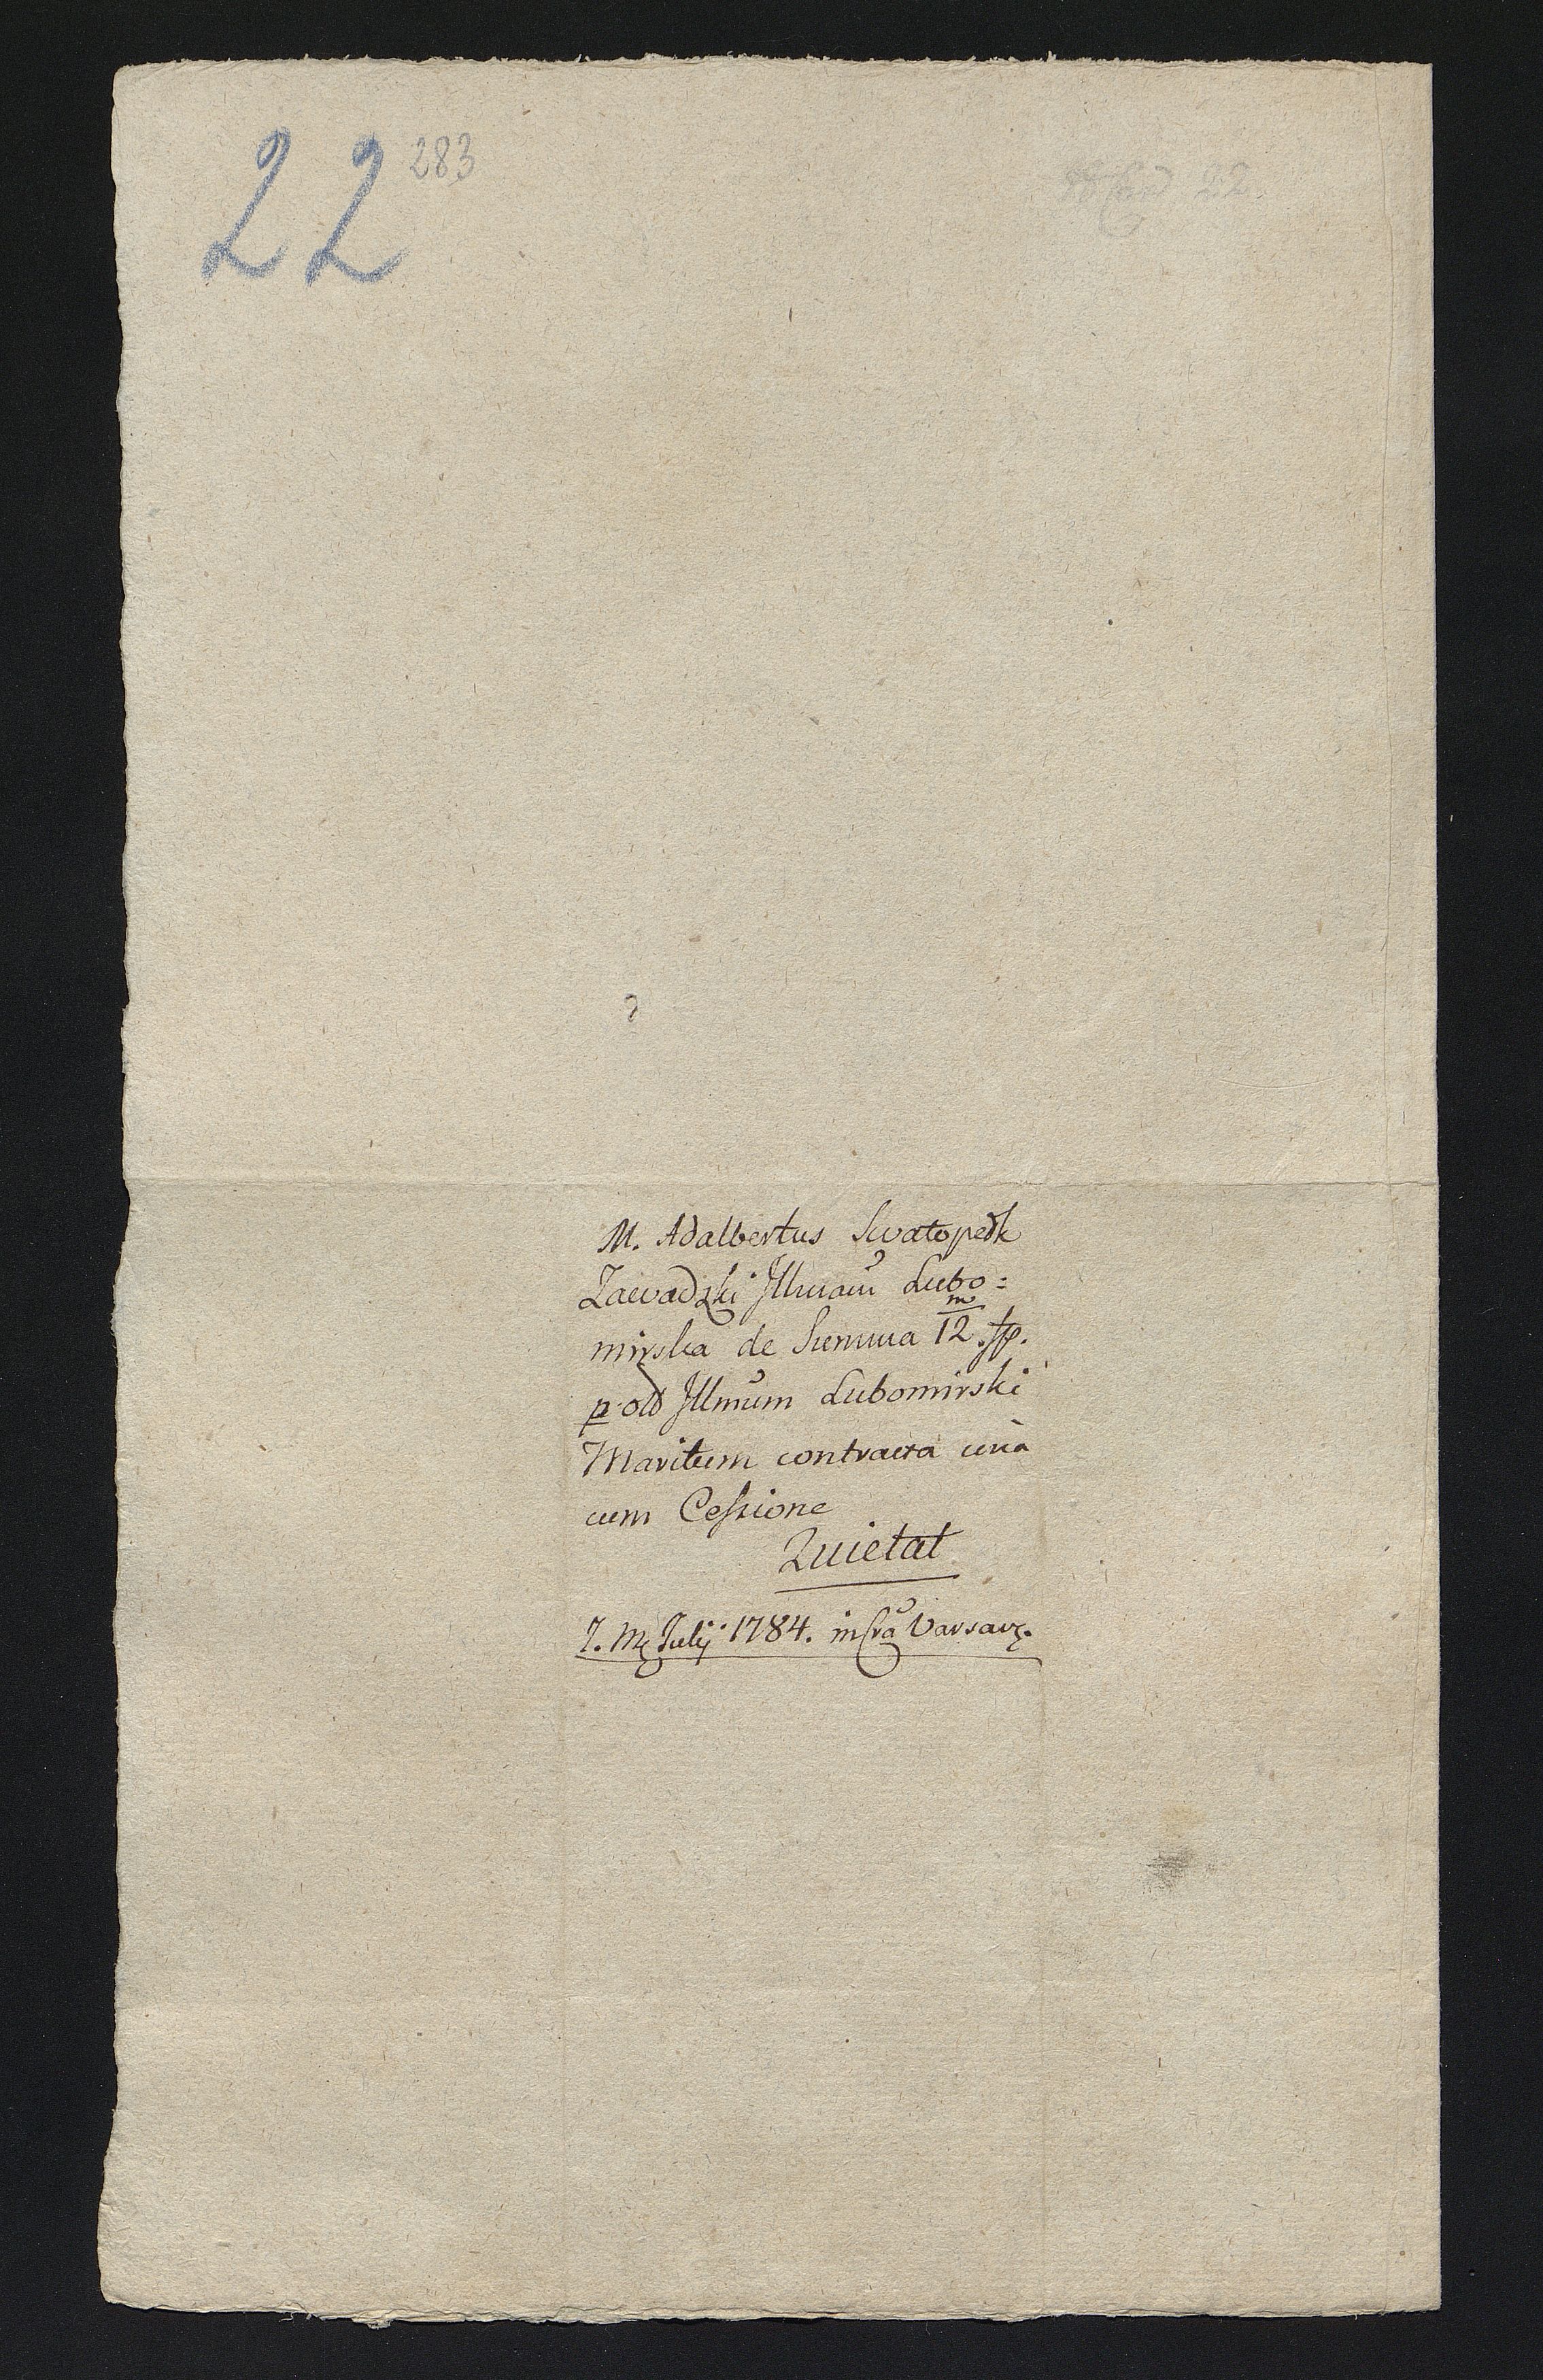 22 283
22
M. Adalbertus Swatopedk
Zawadzki Illmam Lubo=
mirska de Summa 12 m fp.
p old Illmum Lubomirski
Maritum contracta unà
cum Cessione
Quietat
7. M Julij 1784. in Cra Varsav.